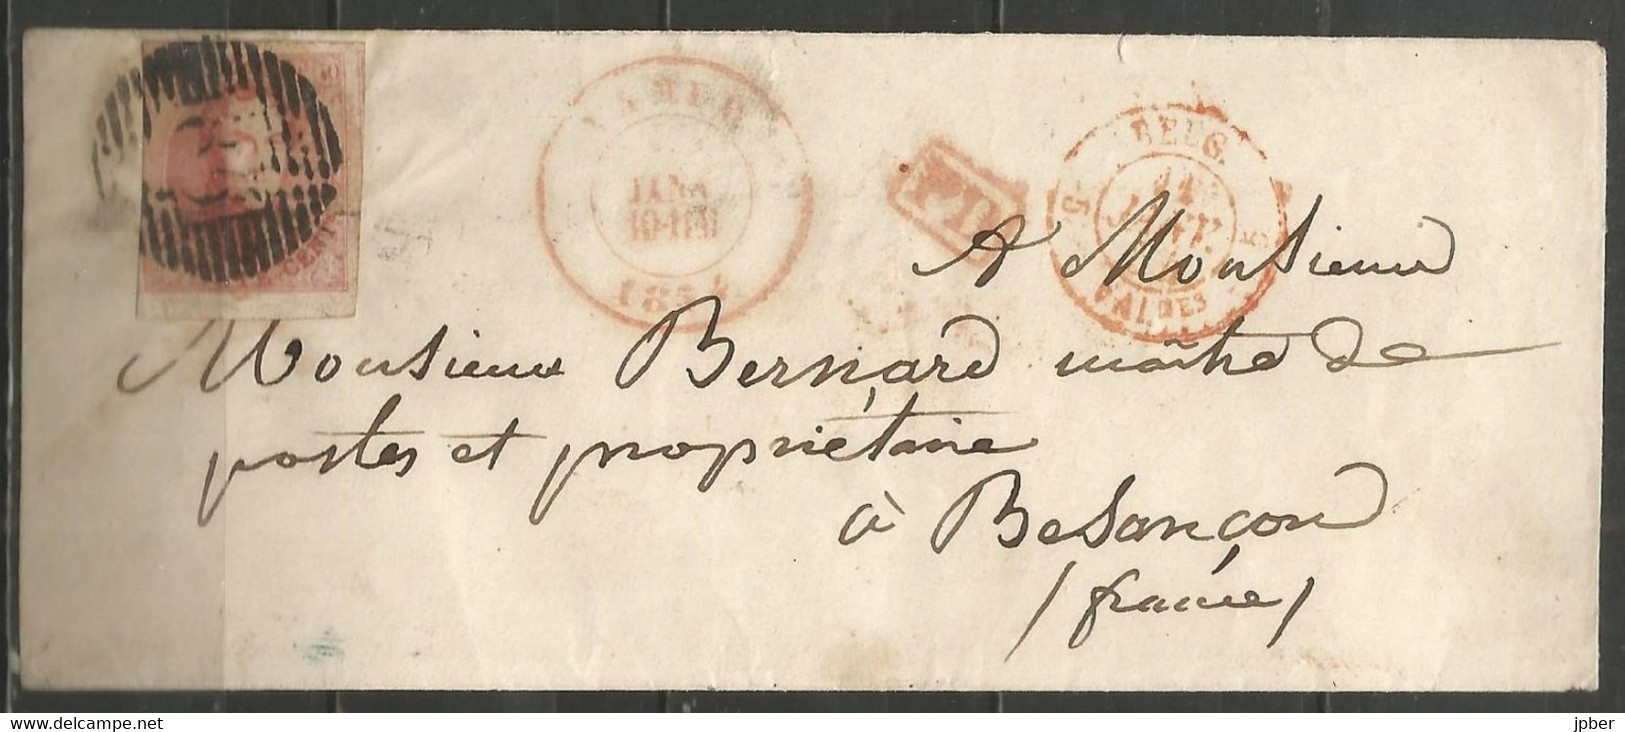 CENT
BELG.
PD
A Monsieur
Monsieur Bernard maître de
postes et propriétaire
à Besançon
/france/
www.delcampe.net
jpber